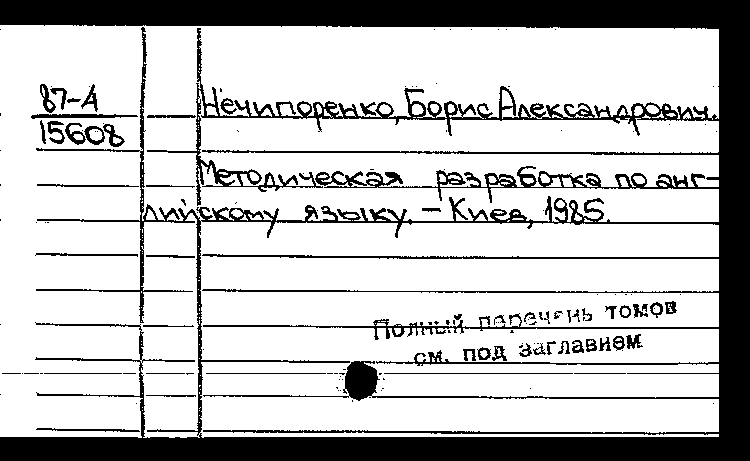 87-А
15608
Нечипоренко, Борис Александрович.
Методическая разработка по анг-
лийскому языку. – Киев, 1985.
Полный перечень томов
см. под заглавием